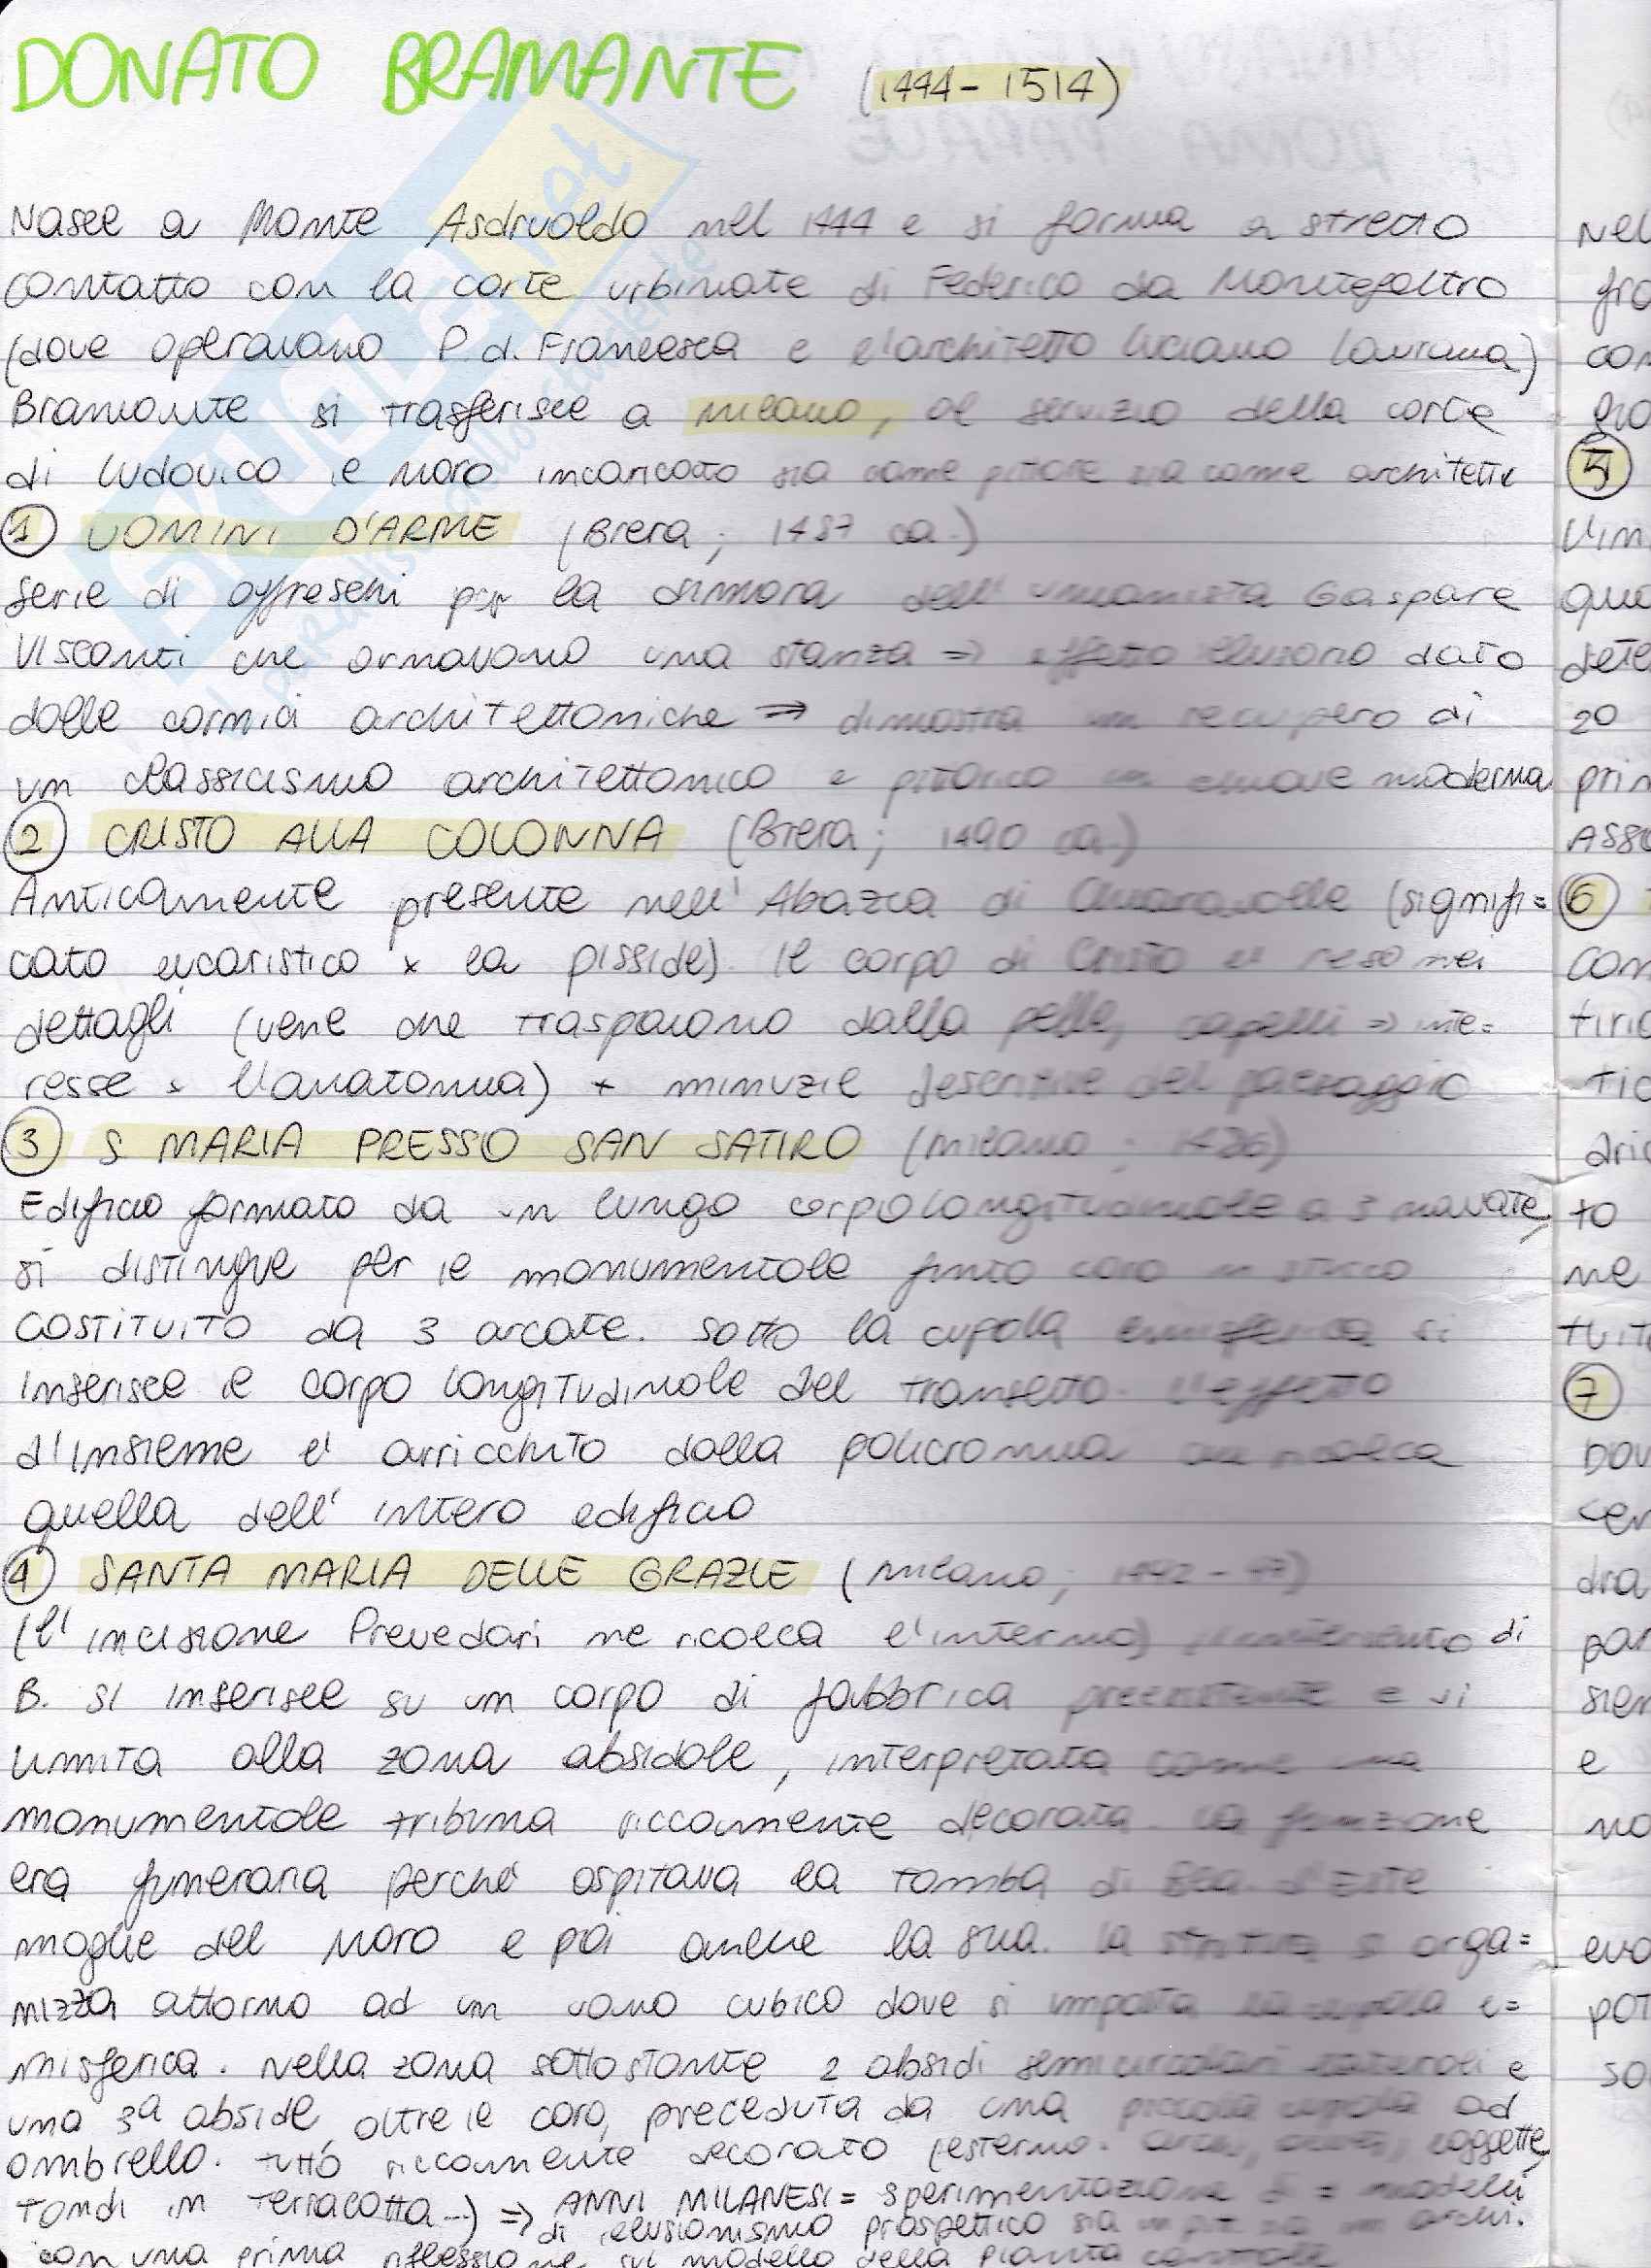 DONATO BRAMANTE (1444-1514)
Nasce a Monte Asdrualdo nel 1444 e si forma a stretto
contatto con la corte urbinate di Federico da Montefeltro
(dove operavano P. d. Francesca e l'architetto Luciano Laurana)
Bramante si trasferisce a Milano, al servizio della corte
di Ludovico il Moro incaricato sia come pittore sia come architetto
1 UOMINI D'ARME (Brera; 1487 ca.)
serie di affreschi per la dimora dell'umanista Gaspare
Visconti che ornavano una stanza ⇒ effetto illusorio dato
dalle cornici architettoniche ⇒ dimostra un recupero di
un classicismo architettonico e pittorico in chiave moderna
2 CRISTO ALLA COLONNA (Brera; 1490 ca.)
Anticamente presente nell'Abazia di Chiaravalle (signifi=
cato eucaristico x la pisside) il corpo di Cristo e' reso nei
dettagli (vene che traspaiono dalla pelle, capelli ⇒ inte=
resse x l'anatomia) + minuzie descrittive del paesaggio
3 S. MARIA PRESSO SAN SATIRO (Milano;
Edificio formato da un lungo corpo longitudinale a 3 navate,
si distingue per il monumentale finto coro in stucco
costituito da 3 arcate. Sotto la cupola emisferica si
inserisce il corpo longitudinale del transetto. L'effetto
d'insieme e' arricchito dalla policromia che ricalca
quella dell'intero edificio
4 SANTA MARIA DELLE GRAZIE (Milano; 1492-97)
(l'incisione Prevedari ne ricalca l'interno) intervento di
B. si inserisce su un corpo di fabbrica preesistente e si
limita alla zona absidale, interpretata come una
monumentale tribuna riccamente decorata. La funzione
era funeraria perché ospitava la tomba di Bea. d'Este
moglie del Moro e poi anche la sua. La struttura si orga=
nizza attorno ad un vano cubico dove si imposta la cupola e=
misferica. Nella zona sottostante 2 absidi semicircolari laterali e
una 3ª abside, oltre il coro, preceduta da una piccola cupola ad
ombrello. tutto riccamente decorato (esterno: archi, loggette,
tondi in terracotta...) ⇒ ANNI MILANESI = sperimentazione di = modelli
di illusionismo prospettico sia in pittura archi.
con una prima riflessione sul modello della pianta centrale
Nel
5
20
6
to
ne
7
e
SKUOLA.net